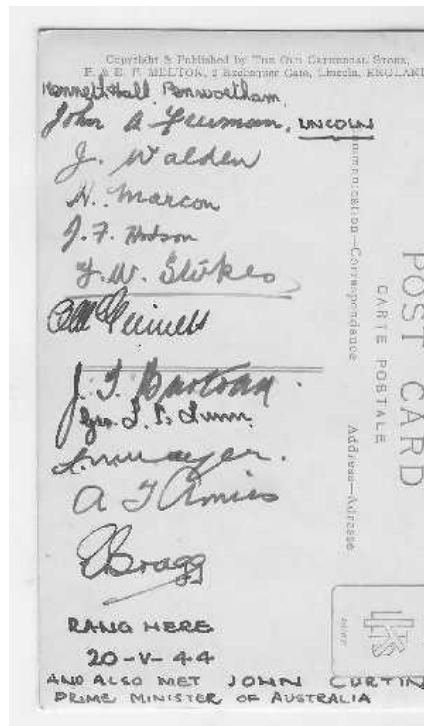 Copyright & Published by THE OLD CATHEDRAL STORE,
F. & E. P. MELTON, 2 Exchequer Gate, Lincoln, ENGLAND
Kenneth Hall. Penwortham.
John A Freeman, LINCOLN
J. Walden
H. Marcon
J. F. Hodson
F. W. Stokes
J. T.
Geo. L. P. Lunn.
A T Amies
E Bragg
RANG HERE
20-V-44
AND ALSO MET JOHN CURTIN
PRIME MINISTER OF AUSTRALIA
Communication—Correspondence
Address—Adresse
CARTE POSTALE
POST CARD